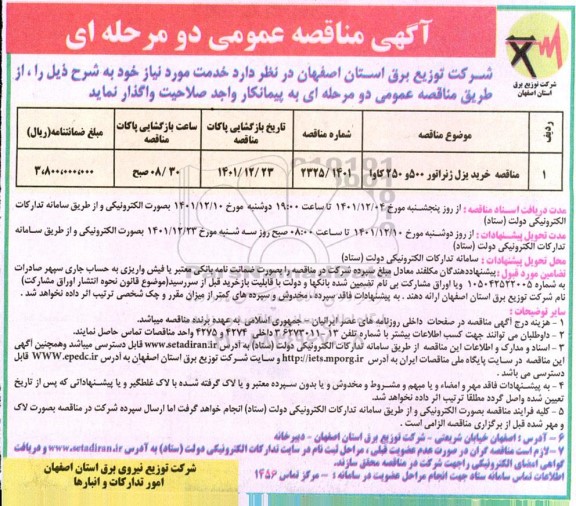 آگهی مناقصه عمومی دو مرحله ای
شرکت توزیع برق
استان اصفهان
شرکت توزیع برق استان اصفهان در نظر دارد خدمت مورد نیاز خود به شرح ذیل را ، از
طریق مناقصه عمومی دو مرحله ای به پیمانکار واجد صلاحیت واگذار نماید
ردیف موضوع مناقصه شماره مناقصه تاریخ بازگشایی پاکات مناقصه ساعت بازگشایی پاکات مناقصه مبلغ ضمانتنامه(ریال)
۱ مناقصه خرید یزل ژنراتور ۵۰۰و ۲۵۰ کاوا ۱۴۰۱/ ۲۳۲۵ ۱۴۰۱/۱۲/۲۳ ۰۸/۳۰ صبح ۳،۸۰۰،۰۰۰،۰۰۰
مدت دریافت اسناد مناقصه : از روز پنجشنبه مورخ ۱۴۰۱/۱۲/۰۴ تا ساعت ۱۹:۰۰ دوشنبه مورخ ۱۴۰۱/۱۲/۱۰ بصورت الکترونیکی و از طریق سامانه تدارکات
الکترونیکی دولت (ستاد)
مدت تحویل پیشنهادات : از روز دوشنبه مورخ ۱۴۰۱/۱۲/۱۰ تا ساعت ۰۸:۰۰ صبح روز سه شنبه مورخ ۱۴۰۱/۱۲/۲۳ بصورت الکترونیکی و از طریق سامانه
تدارکات الکترونیکی دولت (ستاد)
محل تحویل پیشنهادات : سامانه تدارکات الکترونیکی دولت (ستاد)
تضامین مورد قبول : پیشنهاددهندگان مکلفند معادل مبلغ سپرده شرکت در مناقصه را بصورت ضمانت نامه بانکی معتبر یا فیش واریزی به حساب جاری سپهر صادرات
به شماره ۰۱۰۵۰۴۲۵۲۲۰۰۵ ویا اوراق مشارکت بی نام تضمین شده بانکها و دولت با قابلیت بازخرید قبل از سررسید(موضوع قانون نحوه انتشار اوراق مشارکت)
نام شرکت توزیع برق استان اصفهان ارائه دهند . به پیشنهادات فاقد سپرده ، مخدوش و سپرده های کمتر از میزان مقرر و چک شخصی ترتیب اثر داده نخواهد شد.
سایر توضیحات :
۱ - هزینه درج آگهی مناقصه در صفحات داخلی روزنامه های عصر ایرانیان - جمهوری اسلامی به عهده برنده مناقصه میباشد.
۲ - داوطلبان می توانند جهت کسب اطلاعات بیشتر با شماره تلفن ۱۳ -۳۶۲۷۳۰۱۱ داخلی ۴۲۷۴ و ۴۲۷۵ واحد مناقصات تماس حاصل نمایند.
۳ - اسناد و مدارک و اطلاعات این مناقصه از طریق سامانه تدارکات الکترونیکی دولت (ستاد) به آدرس www.setadiran.ir قابل دسترسی میباشد وهمچنین آگهی
این مناقصه در سایت پایگاه ملی مناقصات ایران به آدرس http://iets.mporg.ir و سایت شرکت توزیع برق استان اصفهان به آدرس WWW.epedc.ir قابل
دسترسی می باشد .
۴ - به پیشنهادات فاقد مهر و امضاء و یا مبهم و مشروط و مخدوش و یا بدون سپرده معتبر و یا لاک گرفته شده با لاک غلطگیر و یا پیشنهاداتی که پس از تاریخ
تعیین شده واصل گردد مطلقا ترتیب اثر داده نخواهد شد.
۵ - کلیه فرایند مناقصه بصورت الکترونیکی و از طریق سامانه تدارکات الکترونیکی دولت (ستاد) انجام خواهد گرفت اما ارسال سپرده شرکت در مناقصه بصورت لاک
و مهر شده قبل از برگزاری مناقصه الزامی است .
۶ - آدرس : اصفهان خیابان شریعتی - شرکت توزیع برق استان اصفهان - دبیرخانه
۷ - لازم است مناقصه گران در صورت عدم عضویت قبلی ، مراحل ثبت نام در سایت تدارکات الکترونیکی دولت (ستاد) به آدرس www.setadiran.ir و دریافت
گواهی امضای الکترونیکی راجهت شرکت در مناقصه محقق سازند.
اطلاعات تماس سامانه ستاد جهت انجام مراحل عضویت در سامانه : - مرکز تماس ۱۴۵۶
شرکت توزیع نیروی برق استان اصفهان
امور تدارکات و انبارها